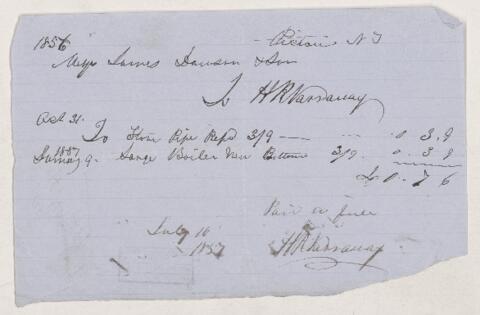 1856 Pictou N S
Messrs James Dawson & Son
To H R Narraway
Oct 31. To Stove Pipe Repd 3/9 — 0 3. 9
1857
9. Large Boiler New Bottom 3/9 0. 3 9
0. 7 6
Paid in full
July 16
1857 H R Narraway